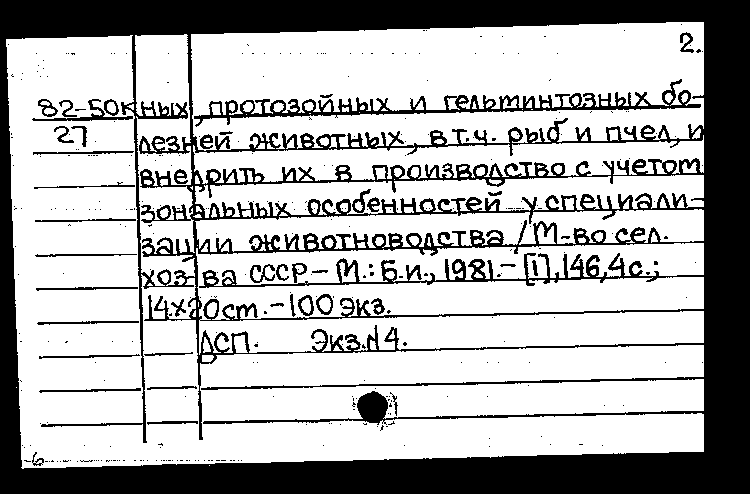 2.
82-50к ных, протозойных и гельминтозных бо-
27 лезней животных, в т.ч. рыб и пчел, и
внедрить их в производство с учетом
зональных особенностей у специали-
зации животноводства / М-во сел.
хоз-ва СССР – М.: Б.и., 1981. – [1], 146, 4 с.;
14х20 ст. – 100 экз.
ДСП. Экз. N 4.
6